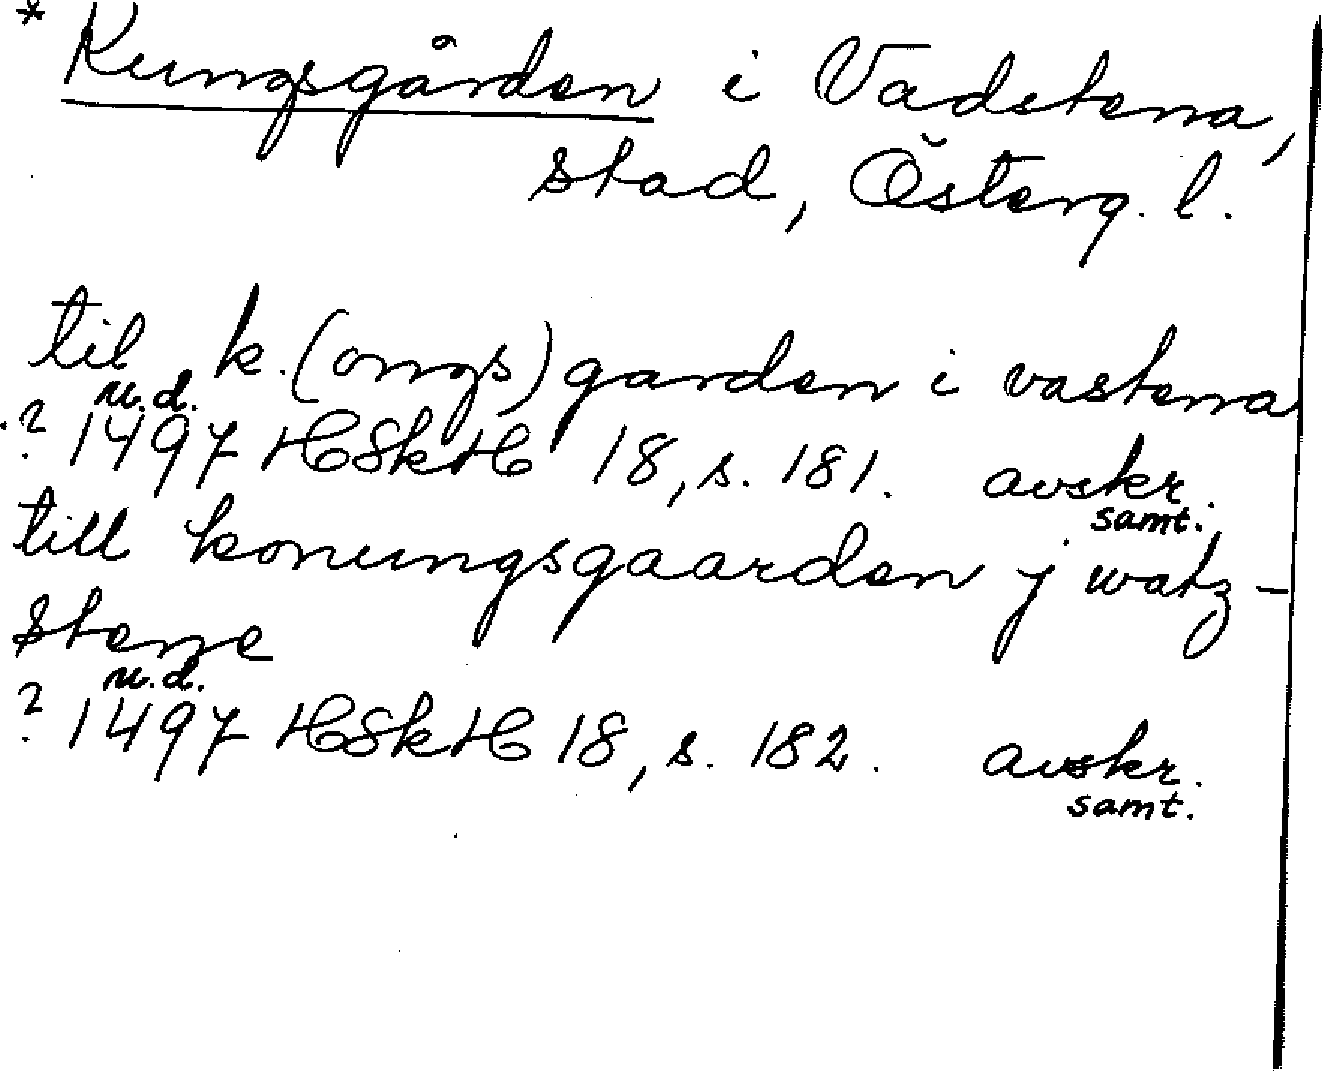 * Kungsgården i Vadstena,
stad, Österg. l.
til k.(ongs)garden i vastena
u.d.
? 1497 HSkH 18, s. 181. avskr.
samt.
till konungsgaarden j watz-
stene
u.d.
? 1497 HSkH 18, s. 182. avskr.
samt.